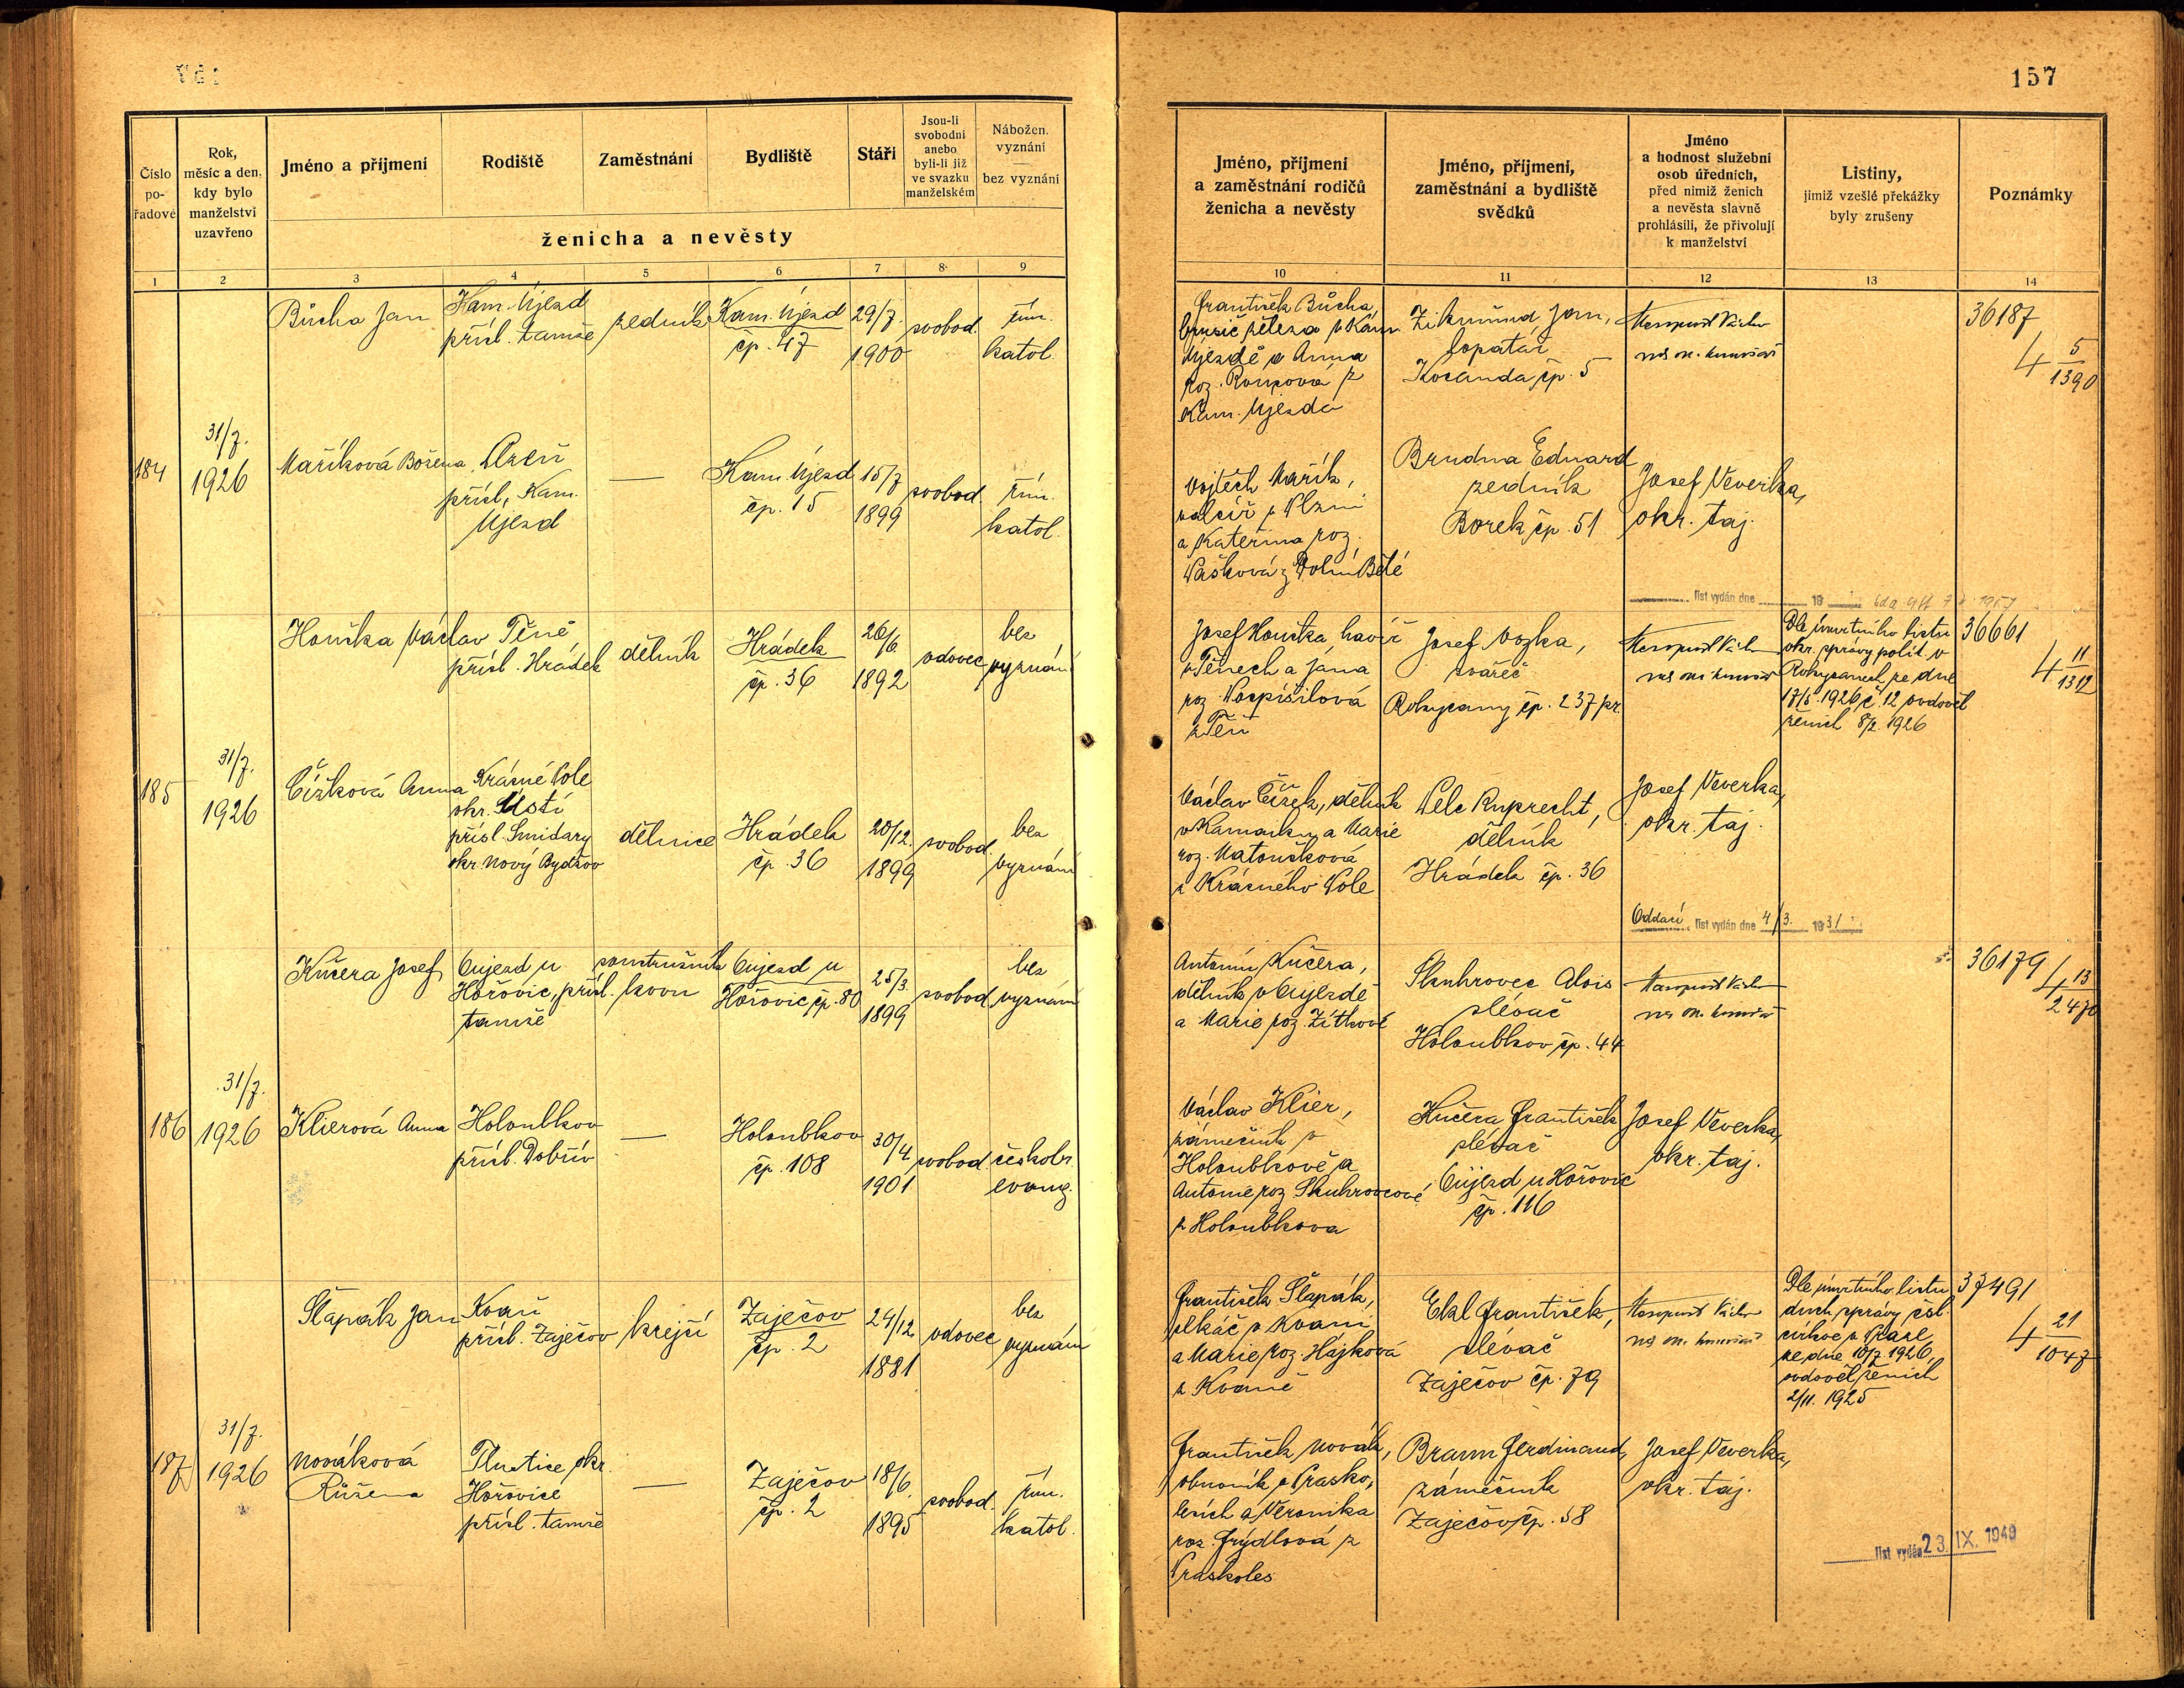 157
Číslo
po-
řadové
Rok,
měsíc a den,
kdy bylo
manželství
uzavřeno
Jméno a příjmení
Rodiště
Zaměstnání
Bydliště
Stáří
Jsou-li
svobodni
anebo
byli-li již
ve svazku
manželském
Nábožen.
vyznání
bez vyznání
ženicha a nevěsty
1 2 3 4 5 6 7 8 9
Jméno, příjmení
a zaměstnání rodičů
ženicha a nevěsty
Jméno, příjmení,
zaměstnání a bydliště
svědků
Jméno
a hodnost služební
osob úředních,
před nimiž ženich
a nevěsta slavně
prohlásili, že přivolují
k manželství
Listiny,
jimiž vzešlé překážky
byly zrušeny
Poznámky
10 11 12 13 14
Bůcha Jan
Kam. Újezd
přísl. tamže
zedník
Kam. Újezd
čp. 47
29/7.
1900
svobod.
řím.
katol.
František Bůcha,
brusič železa v Kam.
Újezdě a Anna
roz. Roupová z
Kam. Újezda
Zikmund Jan,
lopatář
Kocanda čp. 5
36187
4 5/1390
184
31/7.
1926
Maříková Božena
Plzeň
přísl. Kam.
Újezd
—
Kam. Újezd
čp. 15
15/7
1899
svobod.
řím.
katol.
Vojtěch Mařík,
valcíř z Plzni
a Kateřina roz.
Vašková z Dolní Bělé
Brudna Eduard
zedník
Borek čp. 51
Josef Veverka,
okr. taj.
list vydán dne 19
Houška Václav
Těně
přísl. Hrádek
dělník
Hrádek
čp. 36
26/6
1892
vdovec
bez
vyznání
Josef Houška, havíř
v Těnech a Jana
roz. Pospíšilová
z Těň
Josef Vozka,
svářeč
Rokycany čp. 237 př.
Dle úmrtního listu
okr. správy polit. v
Rokycanech ze dne
17/5. 1926 č. 12 ovdověl
ženich 8/2. 1926
36661
4 11/1312
185
31/7.
1926
Čížková Anna
Krásné Pole
okr. Ústí
přísl. Smidary
okr. Nový Bydžov
dělnice
Hrádek
čp. 36
20/12.
1899
svobod.
bez
vyznání
Václav Čížek, dělník
v Kamaiku a Marie
roz. Matoušková
z Krásného Pole
Pelc Ruprecht,
dělník
Hrádek čp. 36
Josef Veverka,
okr. taj.
Oddací list vydán dne 4/3. 1931
Kučera Josef
Oujezd u
Hořovic, přísl.
tamže
soustružník
kovu
Oujezd u
Hořovic čp. 80
25/3.
1899
svobod.
bez
vyznání
Antonín Kučera,
dělník v Oujezdě
a Marie roz. Zítkové
Skuhrovec Alois
slévač
Holoubkov čp. 44
36179
4 13/2470
186
31/7.
1926
Klierová Anna
Holoubkov
přísl. Dobřív
—
Holoubkov
čp. 108
30/4
1901
svobod.
českobr.
evang.
Václav Klier,
zámečník v
Holoubkově a
Antonie roz. Skuhrovcové
z Holoubkova
Kučera František
slévač
Oujezd u Hořovic
čp. 116
Josef Veverka,
okr. taj.
Šlapák Jan
Kvaň
přísl. Zaječov
krejčí
Zaječov
čp. 2
24/12
1881
vdovec
bez
vyznání
František Šlapák,
tkáč v Kvani
a Marie roz. Hájková
z Kvaně
Ekl František,
slévač
Zaječov čp. 79
Dle úmrtního listu
duch. správy čsl.
církve v Praze
ze dne 10/7. 1926,
ovdověl ženich
2/11. 1925
37491
4 21/1047
187
31/7.
1926
Nováková
Růžena
Tlustice okr.
Hořovice
přísl. tamže
—
Zaječov
čp. 2
18/6.
1895
svobod.
řím.
katol.
František Novák,
obuvník v Prasko,
lesích a Veronika
roz. Frýdlová z
Praskoles
Braum Ferdinand,
zámečník
Zaječov čp. 58
Josef Veverka,
okr. taj.
list vydán 23. IX. 1940